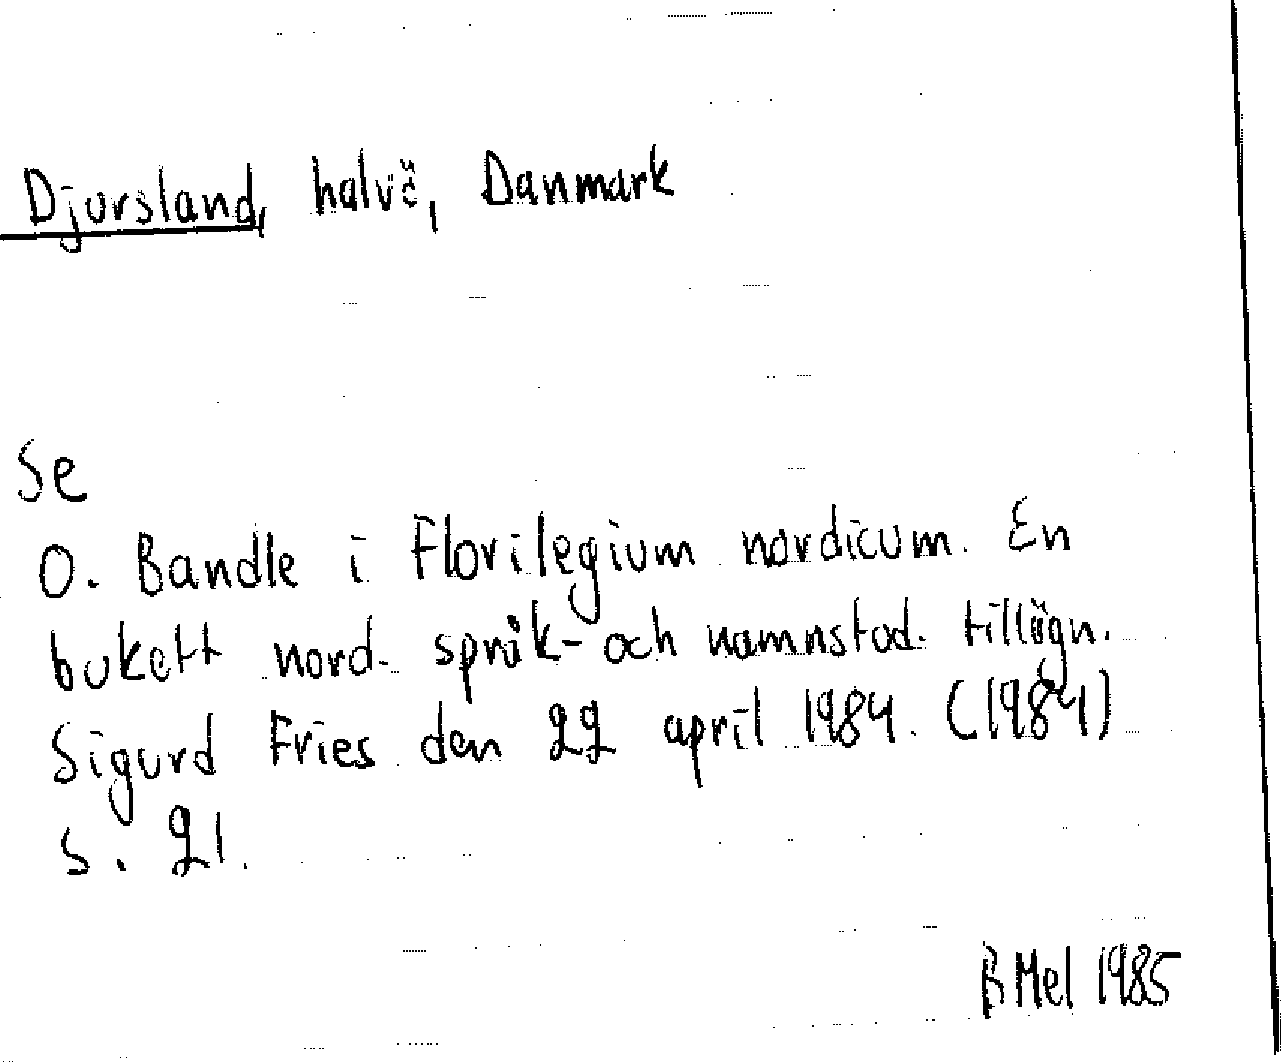 Djursland, halvö, Danmark
Se
O. Bandle i Florilegium nordicum. En
bukett nord. språk- och namnstud. tillägn.
Sigurd Fries den 22 april 1984. (1984)
s. 21.
B Mel 1985